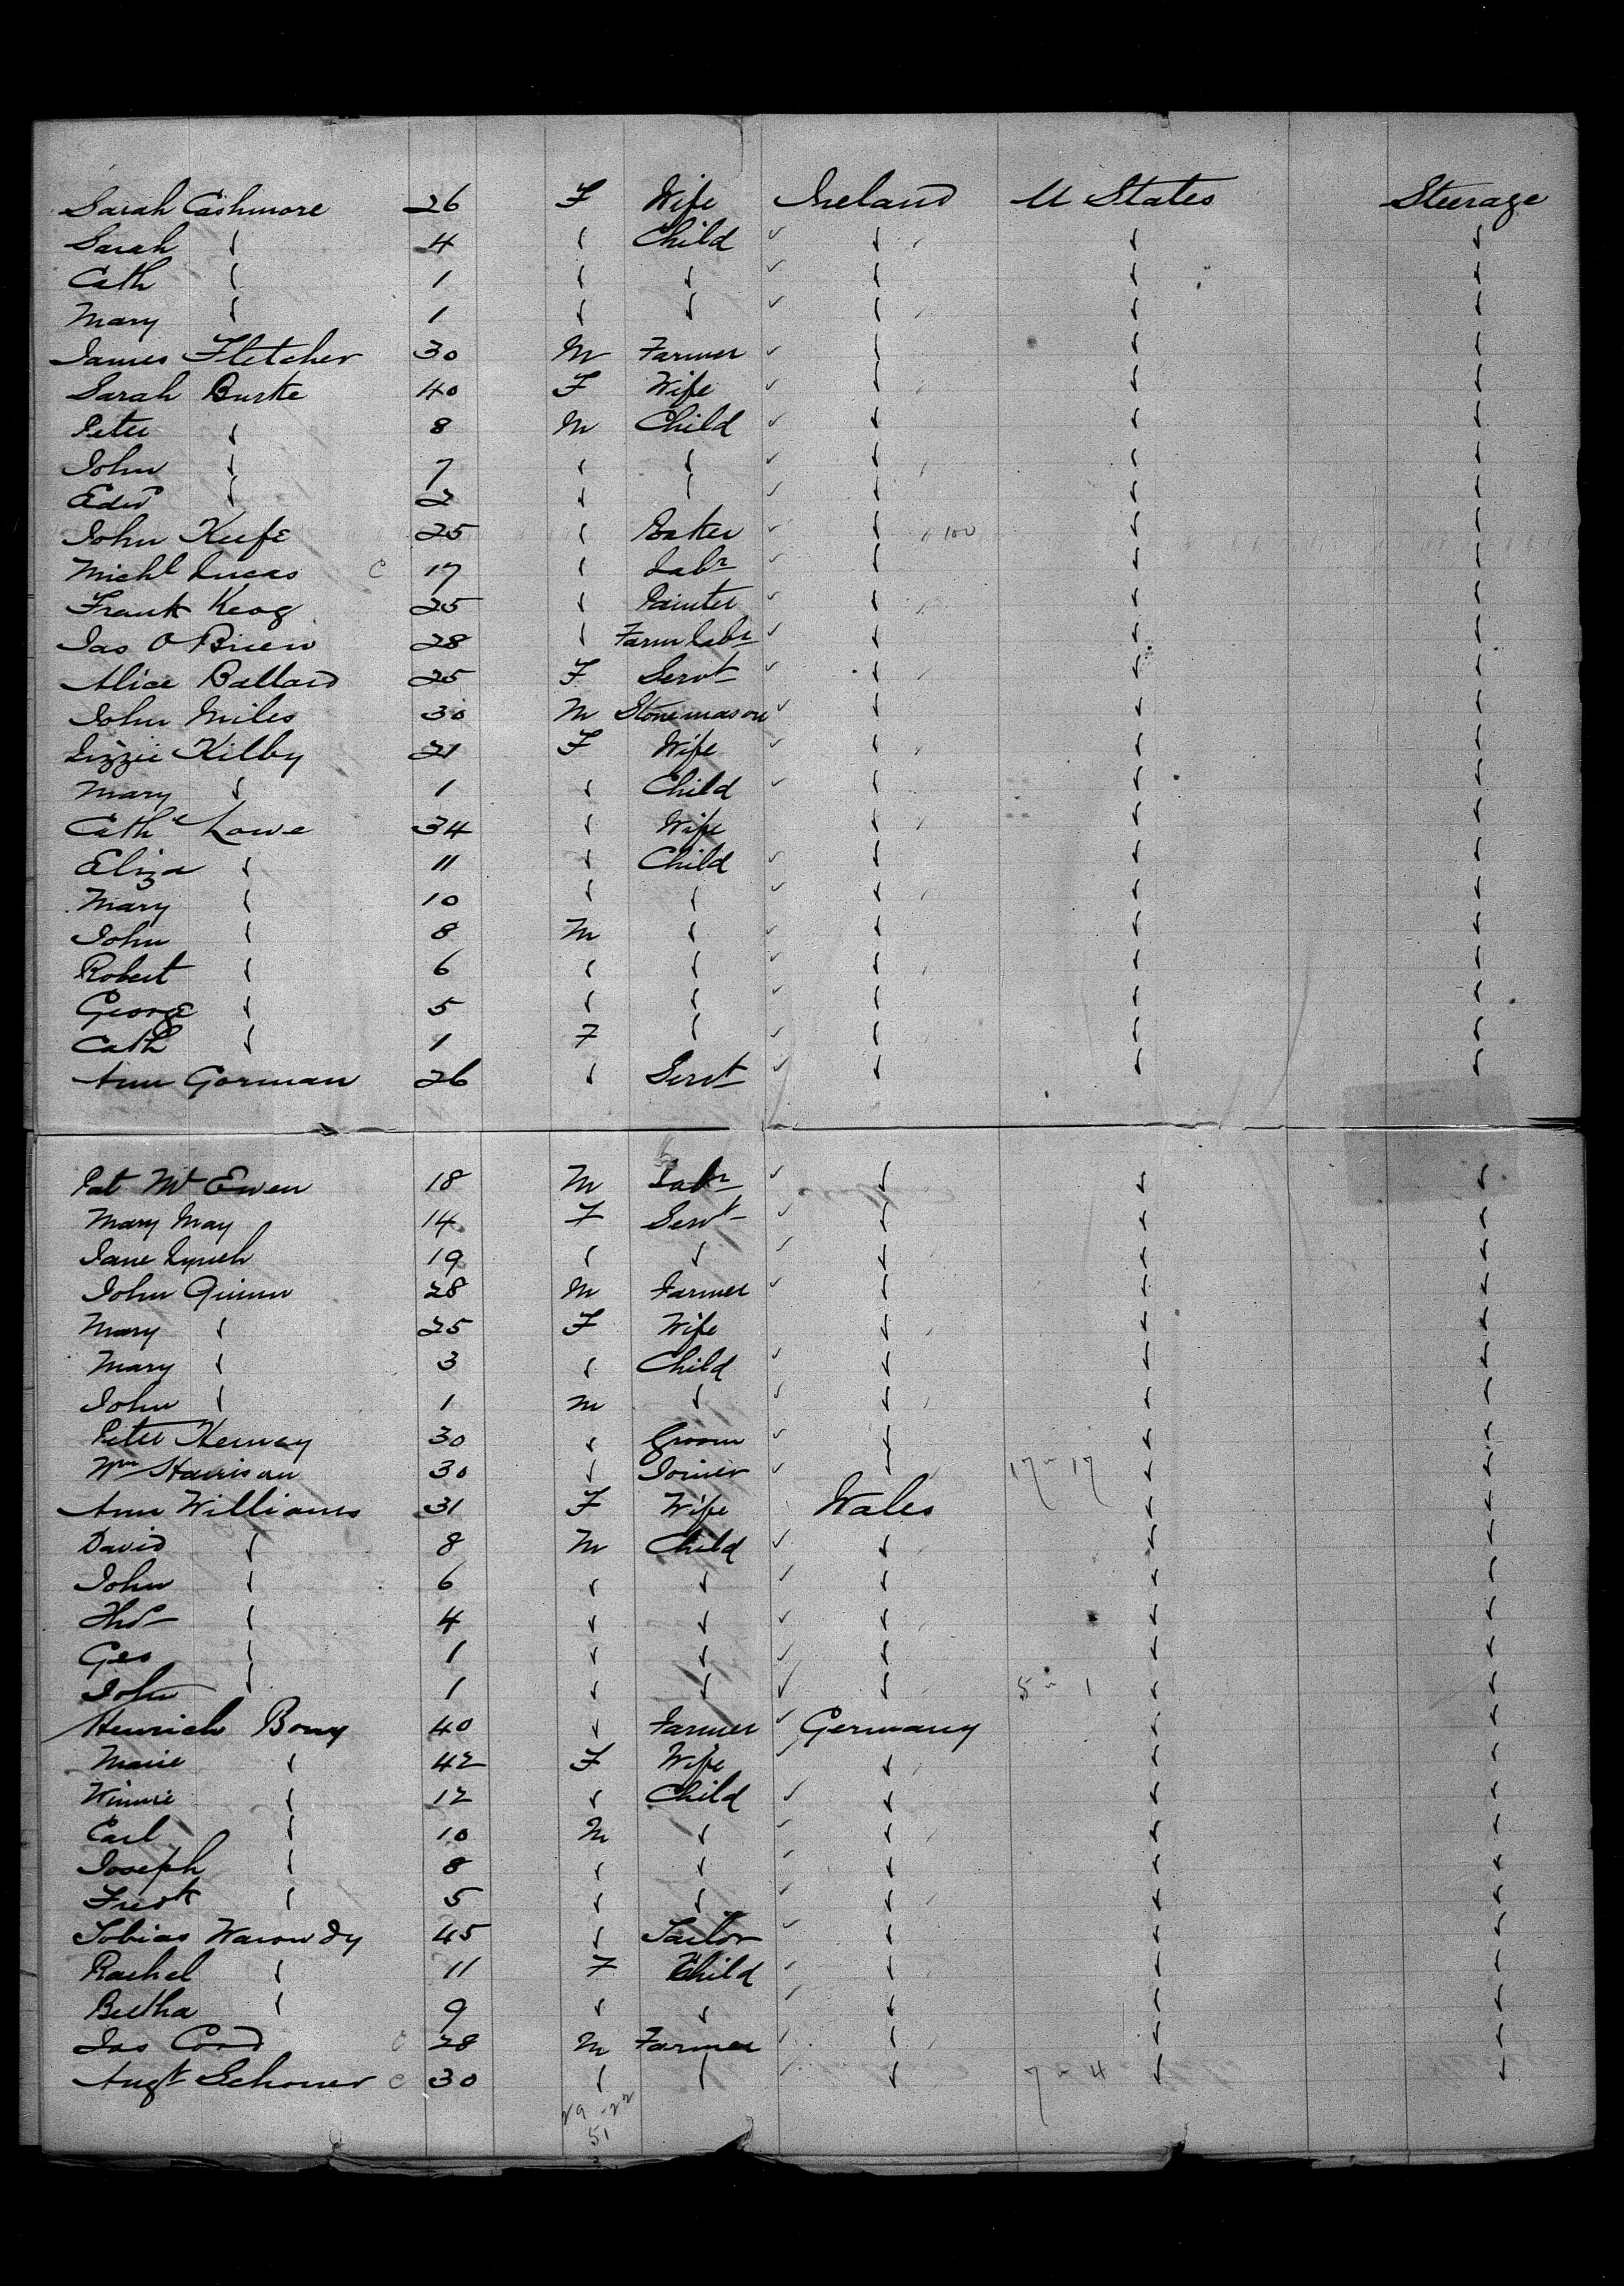 Sarah Cashmore 26 F Wife Ireland U States Steerage
Sarah " 4 " Child " " "
Cath " 1 " " " " "
Mary " 1 " " " " "
James Fletcher 30 M Farmer " " "
Sarah Burke 40 F Wife " " "
Peter " 8 M Child " " "
John " 7 " " " " "
Edwd " 2 " " " " "
John Keefe 25 " Baker " 100 " "
Michl Lucas C 17 " Labr " " "
Frank Keog 25 " Painter " " "
Jas O Brien 28 " Farm Labr " " "
Alice Ballard 25 F Servt " " "
John Miles 30 M Stonemason " " "
Lizzie Kilby 21 F Wife " " "
Mary " 1 " Child " " "
Cathe Lowe 34 " Wife " " "
Eliza " 11 " Child " " "
Mary " 10 " " " " "
John " 8 M " " " "
Robert " 6 " " " " "
George " 5 " " " " "
Cath " 1 F " " " "
Ann Gorman 26 " Servt " " "
Pat Mc Ewen 18 M Labr " " "
Mary May 14 F Servt " " "
Jane Lynch 19 " " " " "
John Quinn 28 M Farmer " " "
Mary " 25 F Wife " " "
Mary " 3 " Child " " "
John " 1 M " " " "
Peter 30 " Groom " " "
Wm Harrison 30 " Joiner " 17 - 17 " "
Ann Williams 31 F Wife Wales " "
David " 8 M Child " " "
John " 6 " " " " "
Thos " 4 " " " " "
Geo " 1 " " " " "
John " 1 " " " 5 - 1 " "
Henrich Bony 40 " Farmer Germany " "
Marie " 42 F Wife " " "
Winnie " 12 " Child " " "
Carl " 10 M " " " "
Joseph " 8 " " " " "
Fredk " 5 " " " " "
Tobias 45 " Tailor " " "
Rachel " 11 F Child " " "
Bertha " 9 " " " " "
Jas Cord C 28 M Farmer " " "
Augt Schoner C 30 " " " 7 - 4 " "
29 - 22
51